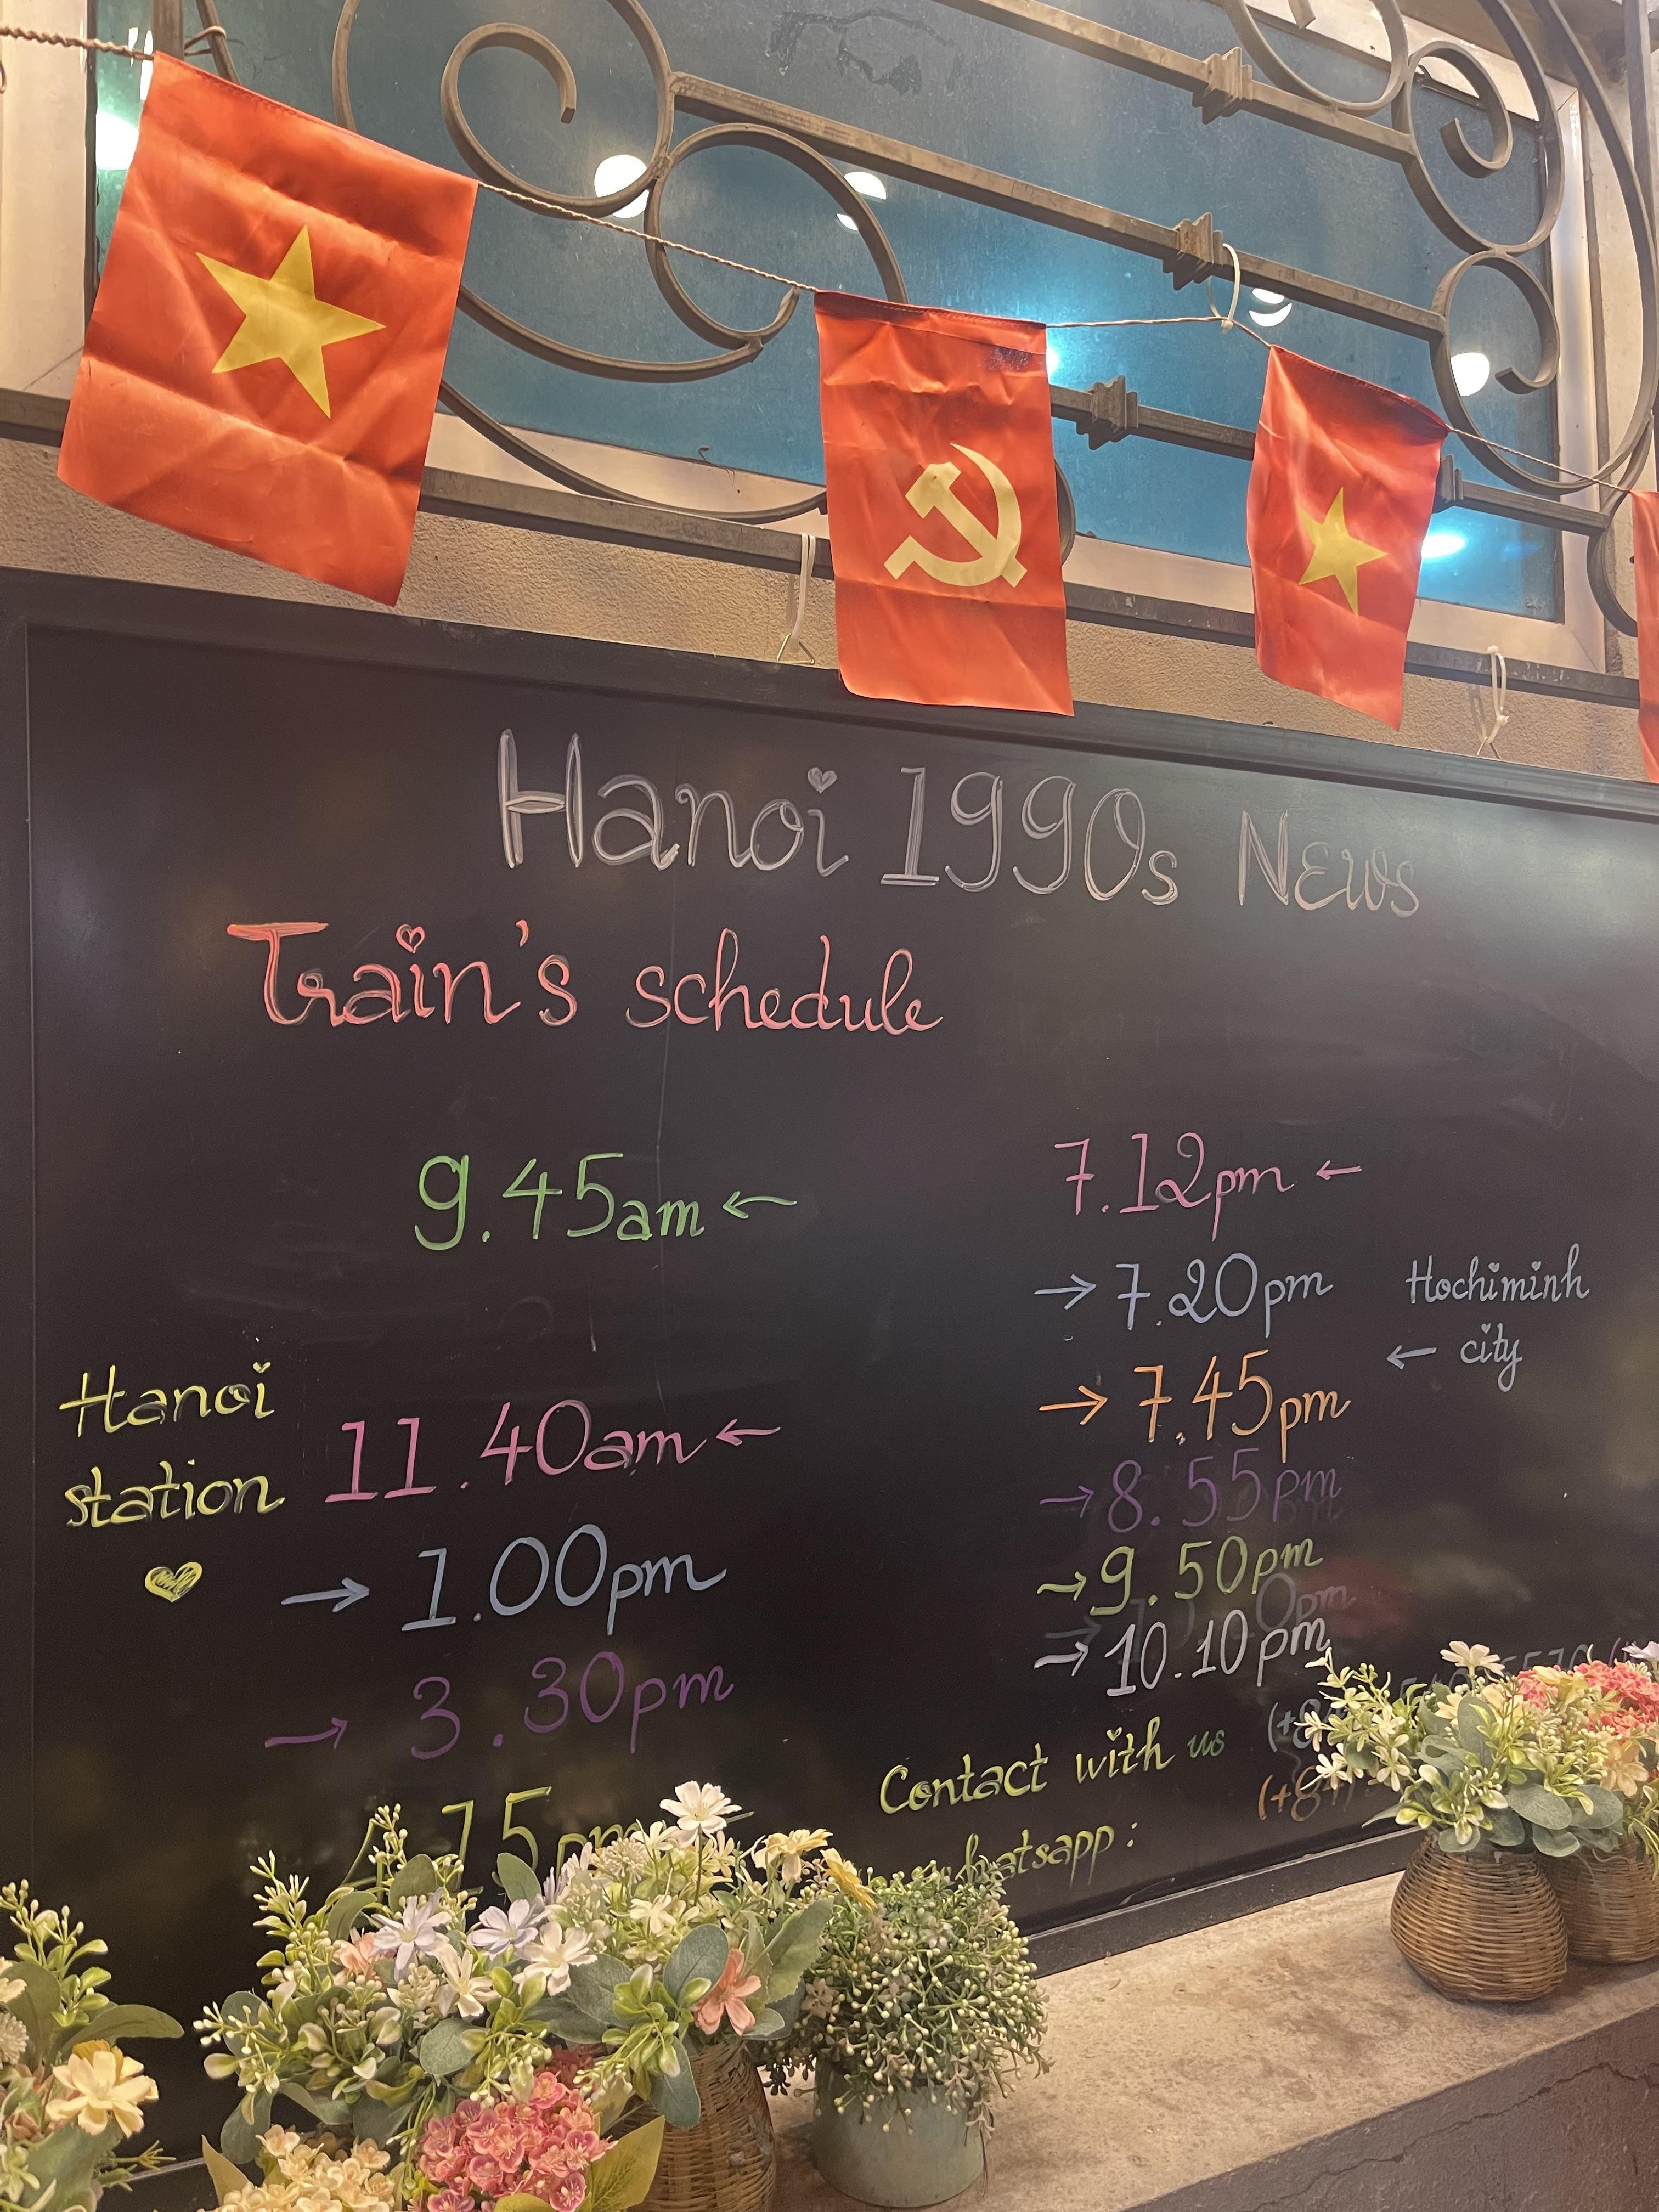 Hanoi 1990s News
Train's schedule
9.45am ←
11.40am ←
Hanoi
station
→ 1.00pm
→ 3.30pm
15pm
7.12pm ←
→ 7.20pm
→ 7.45pm
→ 8.55pm
→ 9.50pm
→ 10.10pm
Hochiminh
← city
Contact with us
whatsapp: